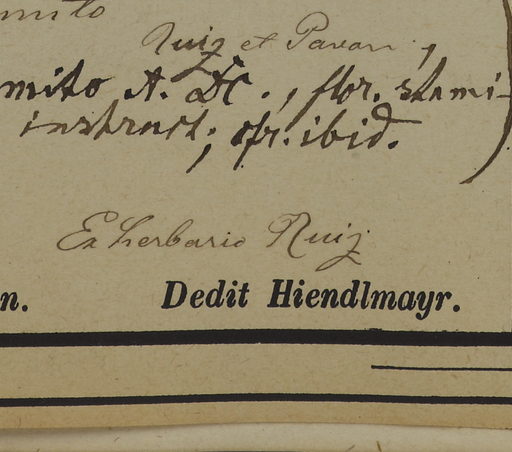 mito
Ruiz et Pavon,
mito A. DC., flor. stami-
instruct; cfr. ibid.)
Ex herbario Ruiz
n.
Dedit Hiendlmayr.